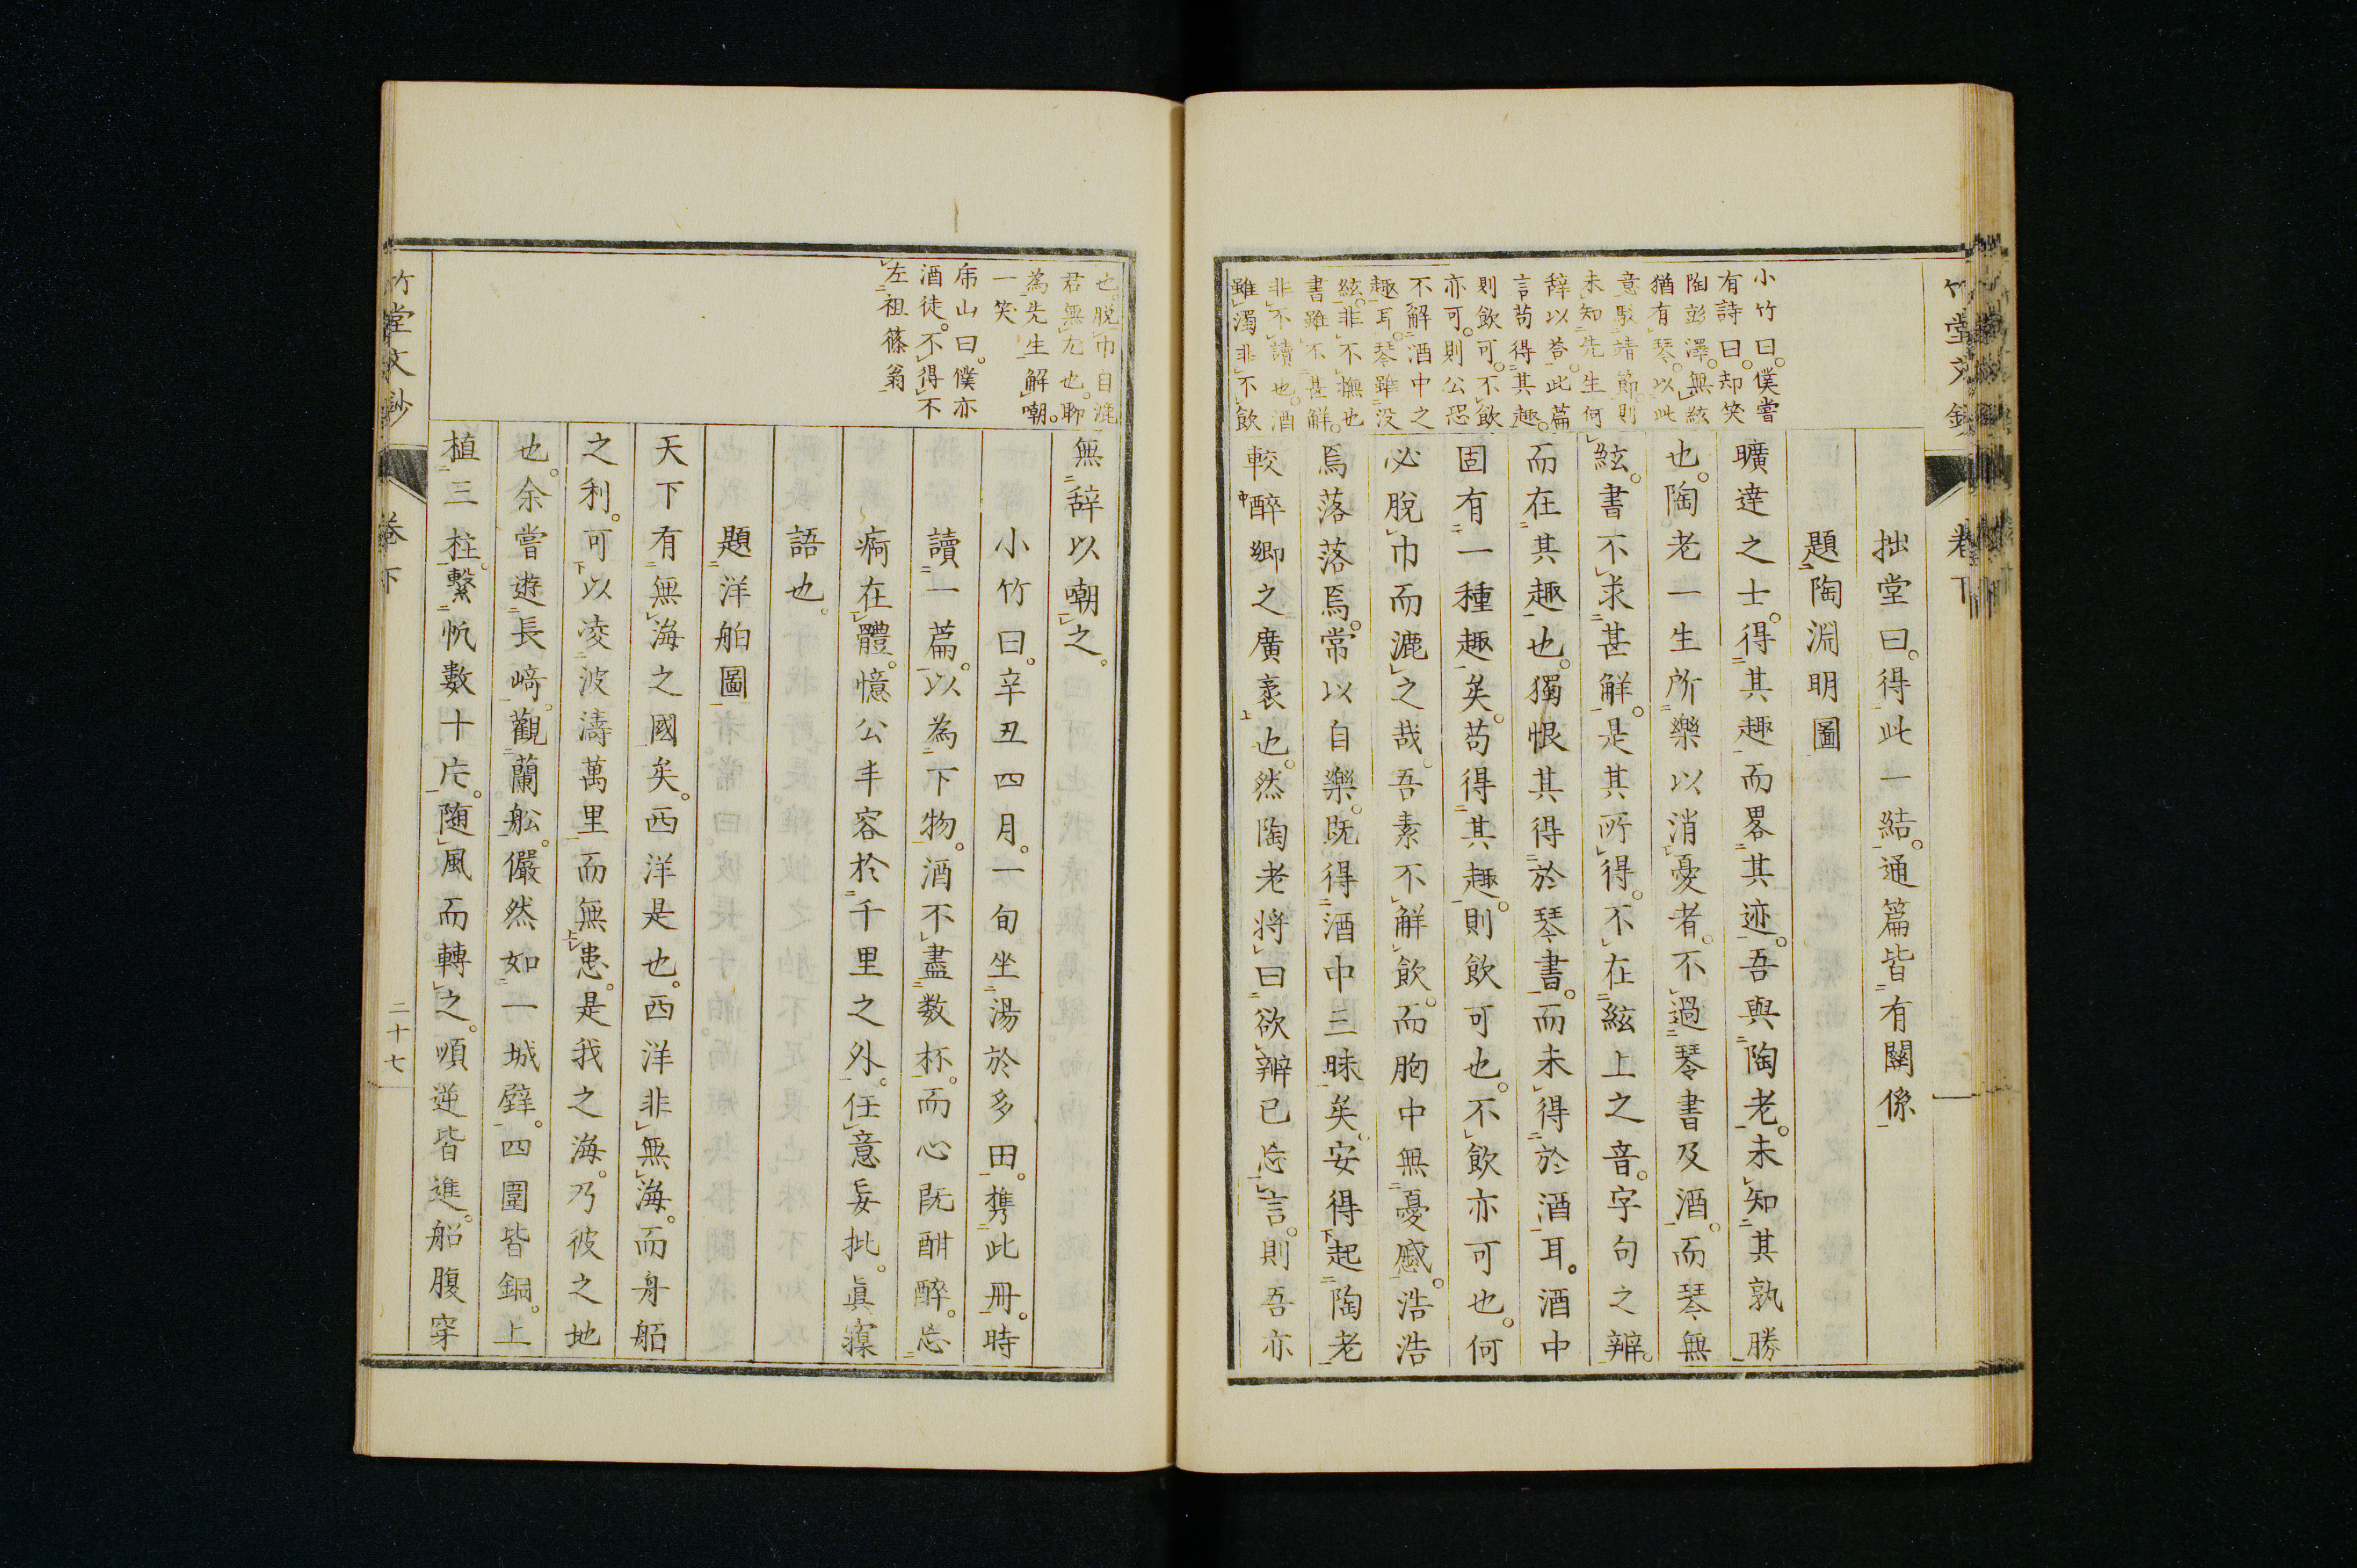 竹堂文鈔
卷下
小竹曰。僕嘗
有詩曰。却笑
陶彭澤。無絃
猶有琴。以此
意駁靖節。則
未知先生何
辞以荅。此篇
言苟得其趣。
則飲可。不飲
亦可。則公恐
不解酒中之
趣耳。琴雖没
絃。非不撫也
書雖不甚解。
非不讀也。酒
雖濁非不飲
拙堂曰。得此一結。通篇皆有關係
題陶淵明圖
曠達之士。得其趣而畧其迹。吾與陶老。未知其孰勝
也。陶老一生所樂以消憂者。不過琴書及酒。而琴無
絃。書不求甚解。是其所得。不在絃上之音。字句之辨。
而在其趣也。獨恨其得於琴書。而未得於酒耳。酒中
固有一種趣矣。苟得其趣。則飲可也。不飲亦可也。何
必脫巾而漉之哉。吾素不解飲。而胸中無憂慼。浩浩
焉落落焉。常以自樂。既得酒中三昧矣。安得起陶老
較醉鄉之廣袤也。然陶老將曰欲辨已忘言。則吾亦
也。脱巾自漉
君無尤也。聊
為先生解嘲。
一笑
席山曰。僕亦
酒徒。不得不
左祖篠翁
無辞以嘲之。
小竹曰。辛丑四月。一旬坐湯於多田。携此冊。時
讀一篇。以為下物。酒不盡数杯。而心既酣醉。忘
痾在體。憶公丰容於千里之外。任意妄批。眞寱
語也。
題洋舶圖
天下有無海之國矣。西洋是也。西洋非無海。而舟舶
之利。可以凌波濤萬里而無患。是我之海。乃彼之地
也。余嘗遊長﨑。觀蘭舩。儼然如一城壁。四圍皆銅。上
植三柱。繫帆數十片。随風而轉之。順逆皆進。船腹穿
竹堂文鈔
卷下
二十七